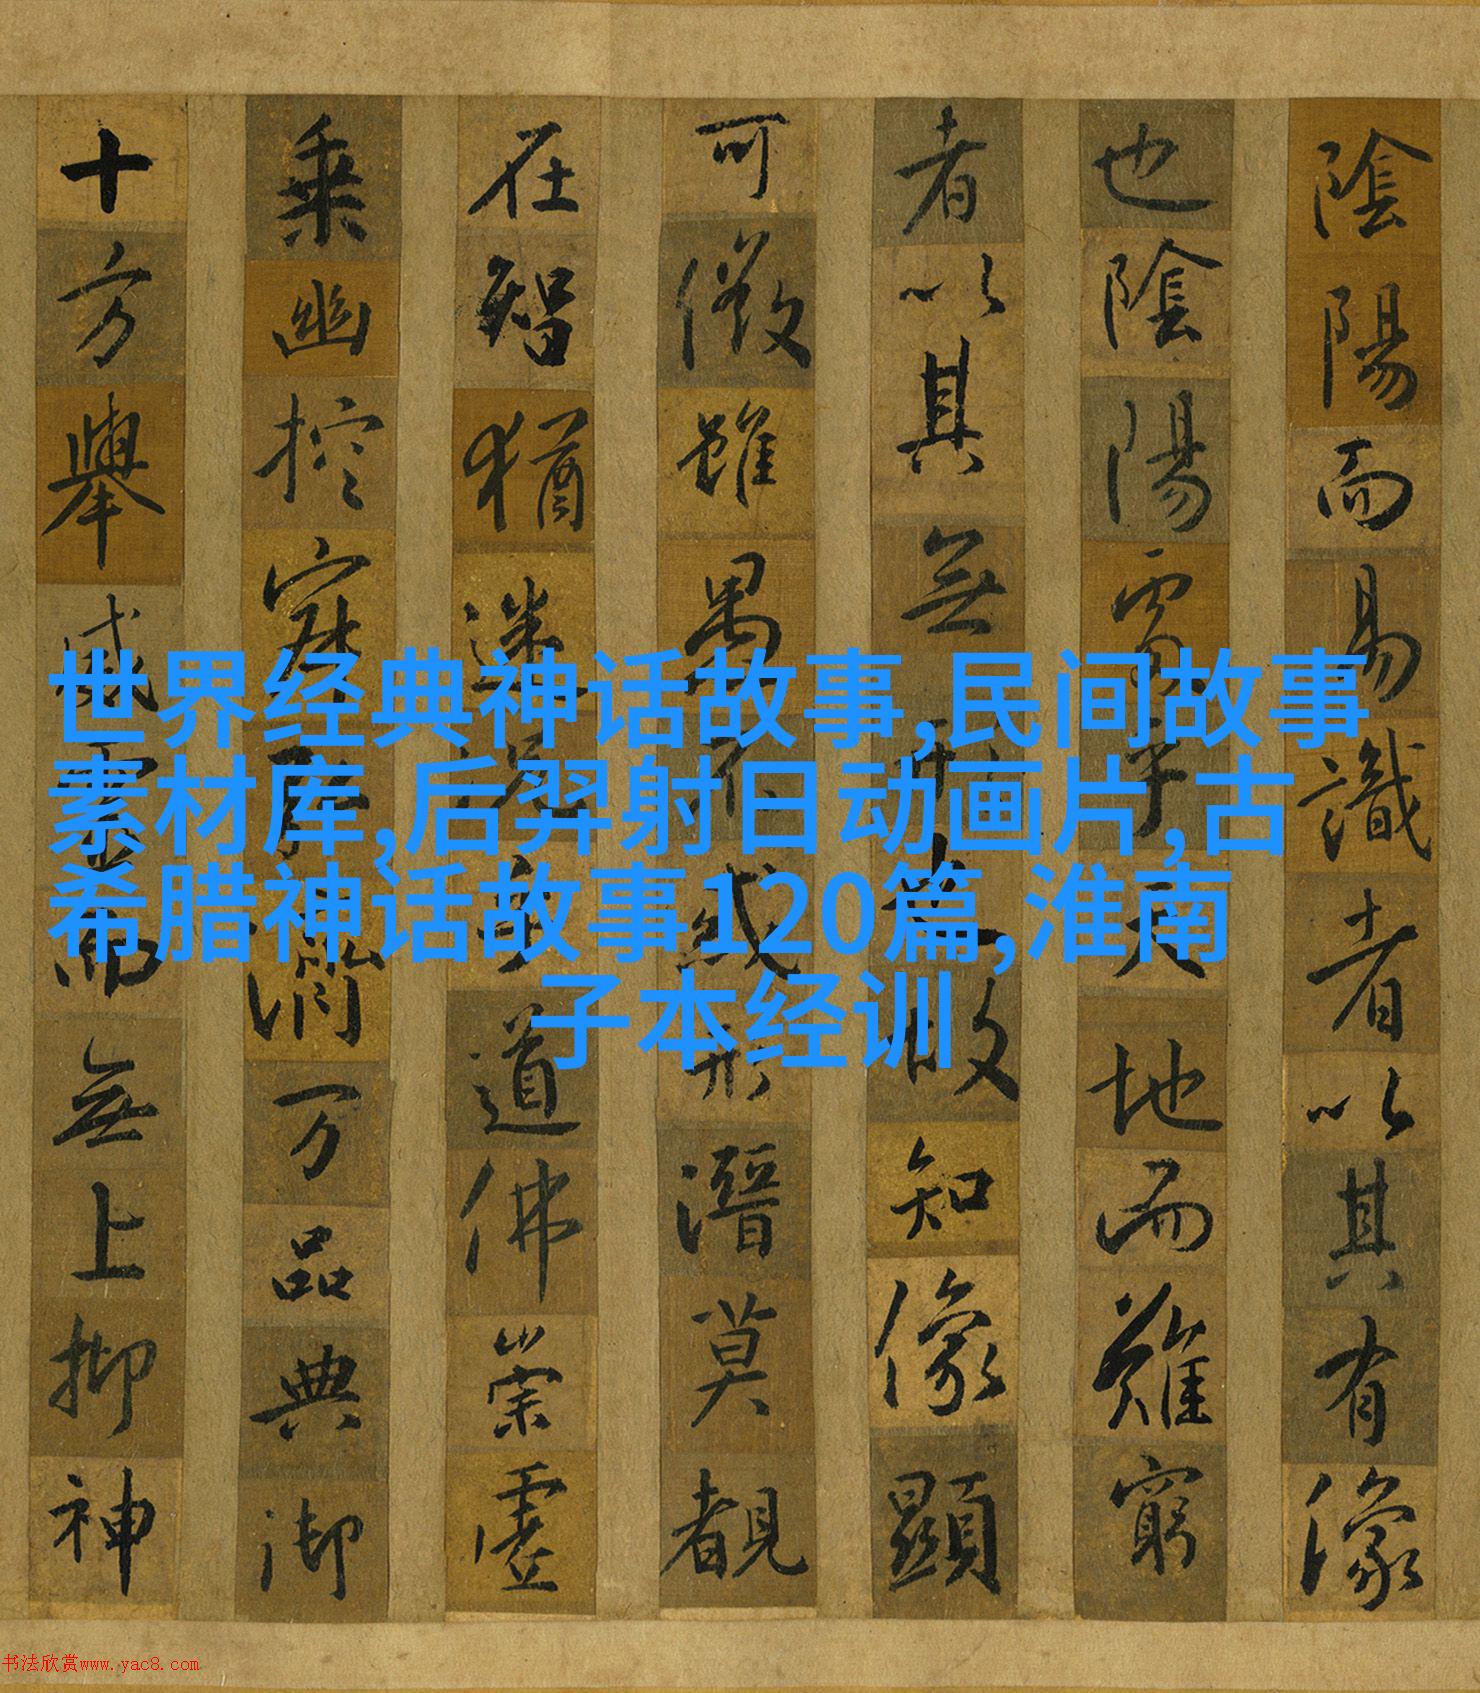 陰陽而易識者以其有像
也陰陽處乎天地而難窮
者以其無形也故知像顯
可徵雖愚不惑形潛莫覩
在智猶迷況乎佛道崇虛
乘幽控寂弘濟万品典御
十方舉威靈而無上抑神
世界经典神话故事,民间故事
素材库,后羿射日动画片,古
希腊神话故事120篇,淮南
子本经训
书法欣赏www.yac8.com